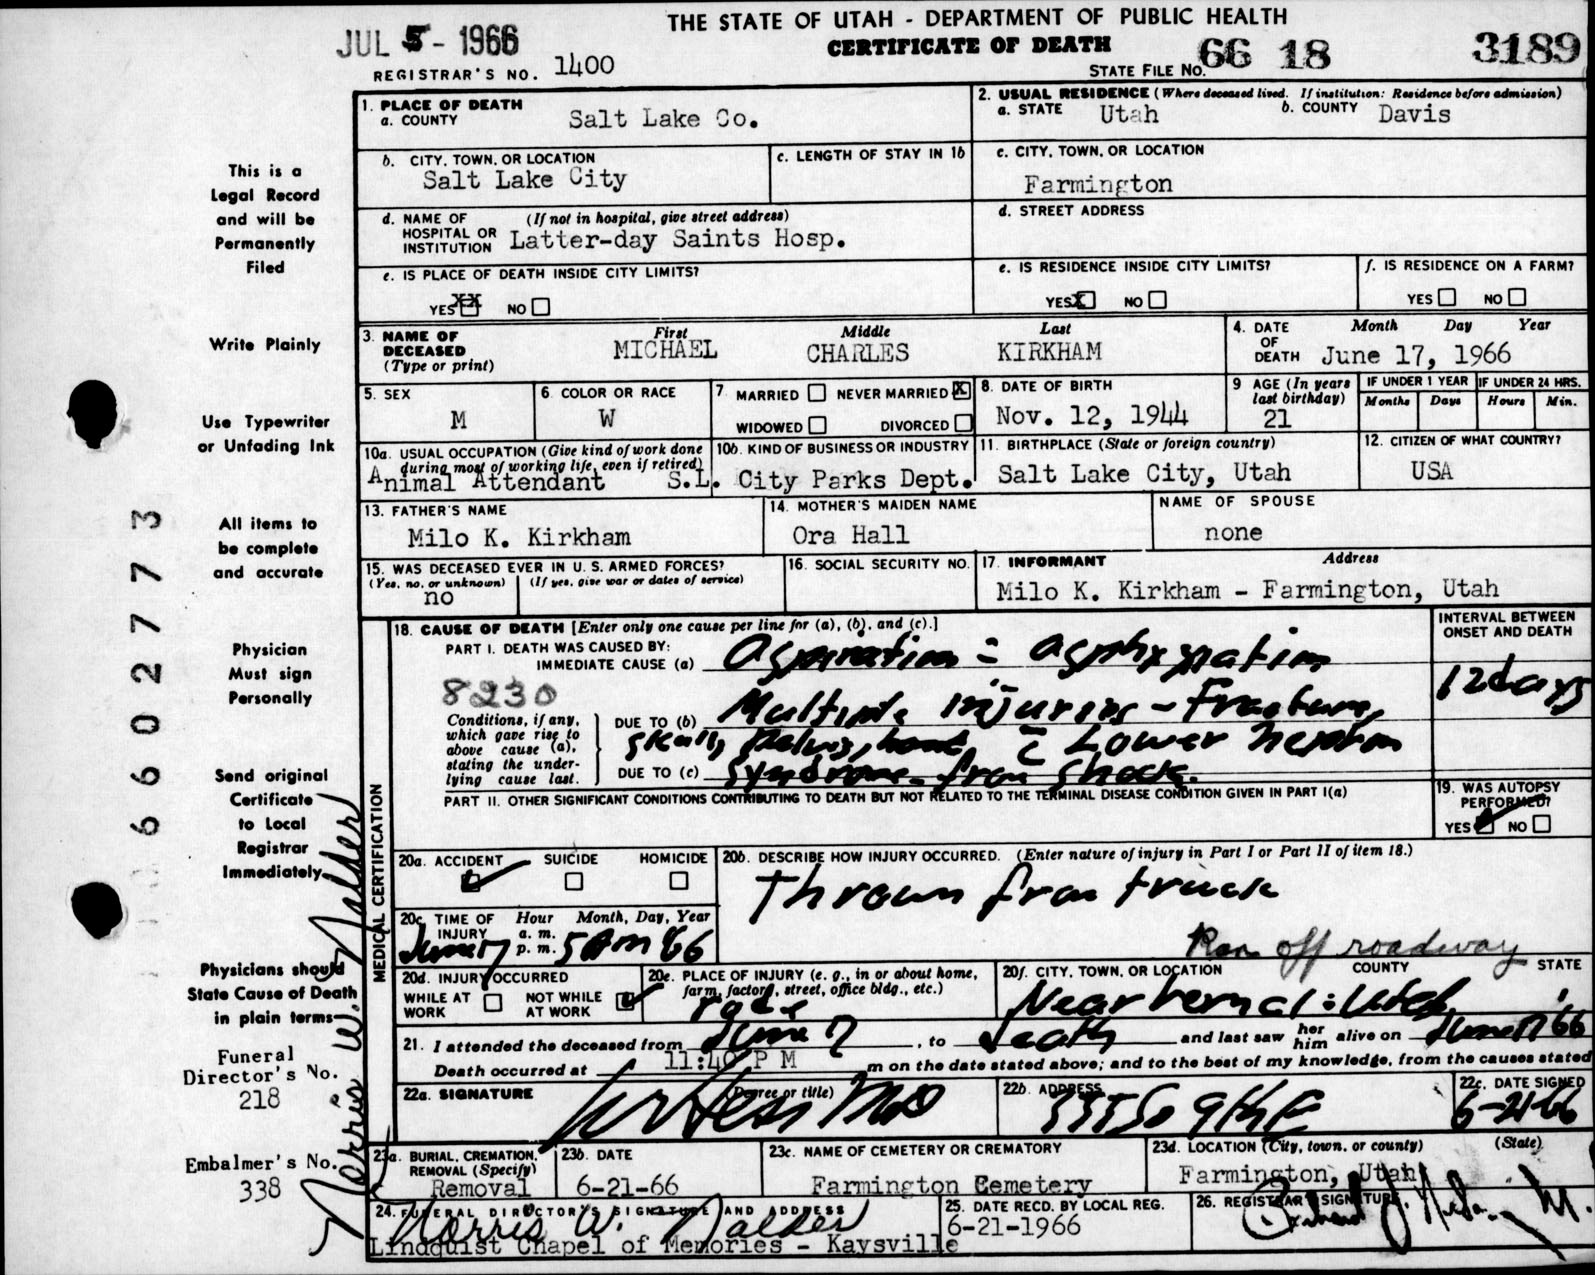 THE STATE OF UTAH - DEPARTMENT OF PUBLIC HEALTH
CERTIFICATE OF DEATH
JUL 5 - 1966
REGISTRAR'S NO. 1400
STATE FILE NO. 66 18 3189
This is a
Legal Record
and will be
Permanently
Filed
Write Plainly
Use Typewriter
or Unfading Ink
All items to
be complete
and accurate
Physician
Must sign
Personally
Send original
Certificate
to Local
Registrar
Immediately
Physicians should
State Cause of Death
in plain terms
Funeral
Director's No.
218
Embalmer's No.
338
Norris W. Nalder
6 6 0 2 7 7 3
1. PLACE OF DEATH
a. COUNTY Salt Lake Co.
2. USUAL RESIDENCE (Where deceased lived. If institution: Residence before admission)
a. STATE Utah b. COUNTY Davis
b. CITY, TOWN, OR LOCATION
Salt Lake City
c. LENGTH OF STAY IN 1b
c. CITY, TOWN, OR LOCATION
Farmington
d. NAME OF HOSPITAL OR INSTITUTION (If not in hospital, give street address)
Latter-day Saints Hosp.
d. STREET ADDRESS
e. IS PLACE OF DEATH INSIDE CITY LIMITS?
YES XX NO
e. IS RESIDENCE INSIDE CITY LIMITS?
YES X NO
f. IS RESIDENCE ON A FARM?
YES NO
3. NAME OF DECEASED (Type or print)
First Middle Last
MICHAEL CHARLES KIRKHAM
4. DATE OF DEATH Month Day Year
June 17, 1966
5. SEX
M
6. COLOR OR RACE
W
7. MARRIED NEVER MARRIED X
WIDOWED DIVORCED
8. DATE OF BIRTH
Nov. 12, 1944
9 AGE (In years last birthday)
21
IF UNDER 1 YEAR
Months Days
IF UNDER 24 HRS.
Hours Min.
10a. USUAL OCCUPATION (Give kind of work done during most of working life, even if retired)
Animal Attendant
10b. KIND OF BUSINESS OR INDUSTRY
S.L. City Parks Dept.
11. BIRTHPLACE (State or foreign country)
Salt Lake City, Utah
12. CITIZEN OF WHAT COUNTRY?
USA
13. FATHER'S NAME
Milo K. Kirkham
14. MOTHER'S MAIDEN NAME
Ora Hall
NAME OF SPOUSE
none
15. WAS DECEASED EVER IN U. S. ARMED FORCES?
(Yes, no, or unknown) (If yes, give war or dates of service)
no
16. SOCIAL SECURITY NO.
17. INFORMANT Address
Milo K. Kirkham - Farmington, Utah
MEDICAL CERTIFICATION
18. CAUSE OF DEATH [Enter only one cause per line for (a), (b), and (c).]
INTERVAL BETWEEN ONSET AND DEATH
PART I. DEATH WAS CAUSED BY:
IMMEDIATE CAUSE (a) Aspiration = asphyxiation
12 days
8230
Conditions, if any, which gave rise to above cause (a), stating the underlying cause last.
DUE TO (b) Multiple injuries - Fracture,
skull, Pelvis, c̄ Lower nephron
DUE TO (c) syndrome from shock.
PART II. OTHER SIGNIFICANT CONDITIONS CONTRIBUTING TO DEATH BUT NOT RELATED TO THE TERMINAL DISEASE CONDITION GIVEN IN PART I(a)
19. WAS AUTOPSY PERFORMED?
YES NO
20a. ACCIDENT SUICIDE HOMICIDE
20b. DESCRIBE HOW INJURY OCCURRED. (Enter nature of injury in Part I or Part II of item 18.)
Thrown from truck
Ran off roadway
20c. TIME OF INJURY Hour Month, Day, Year
a. m.
p. m.
June 7 5 AM 66
20d. INJURY OCCURRED
WHILE AT WORK NOT WHILE AT WORK
20e. PLACE OF INJURY (e. g., in or about home, farm, factory, street, office bldg., etc.)
20f. CITY, TOWN, OR LOCATION COUNTY STATE
Near Vernal: Utah
21. I attended the deceased from June 7, to death and last saw her him alive on June 17 66
Death occurred at 11:40 P M m on the date stated above; and to the best of my knowledge, from the causes stated
22a. SIGNATURE (Degree or title)
22b. ADDRESS
22c. DATE SIGNED
6-21-66
23a. BURIAL, CREMATION, REMOVAL (Specify)
Removal
23b. DATE
6-21-66
23c. NAME OF CEMETERY OR CREMATORY
Farmington Cemetery
23d. LOCATION (City, town, or county) (State)
Farmington, Utah
24. FUNERAL DIRECTOR'S SIGNATURE AND ADDRESS
Norris W. Nalder
Lindquist Chapel of Memories - Kaysville
25. DATE RECD. BY LOCAL REG.
6-21-1966
26. REGISTRAR'S SIGNATURE